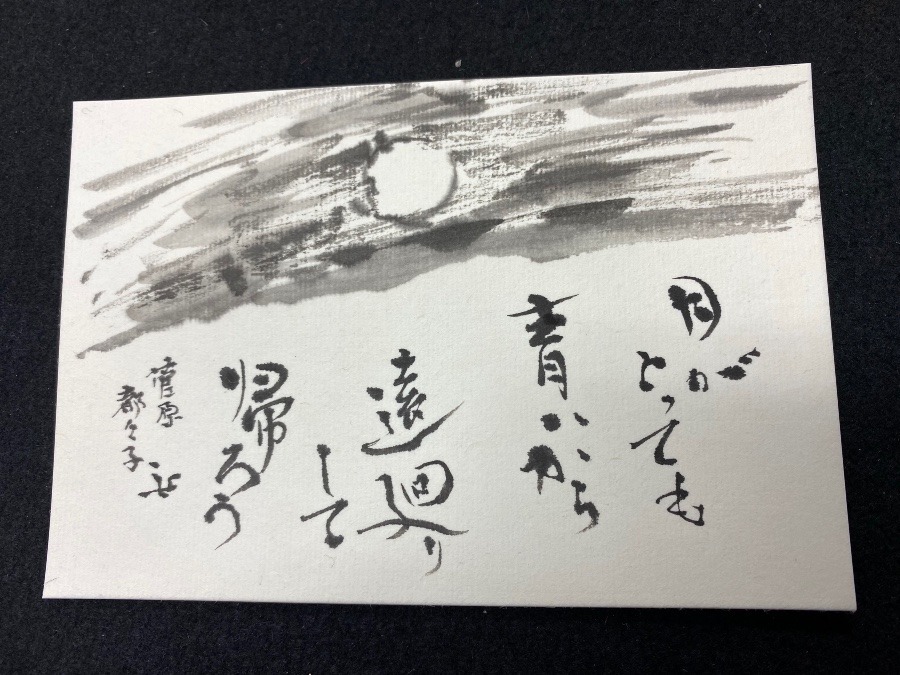 月が
とっても
青いから
遠廻り
して
帰ろう
菅原
都々子